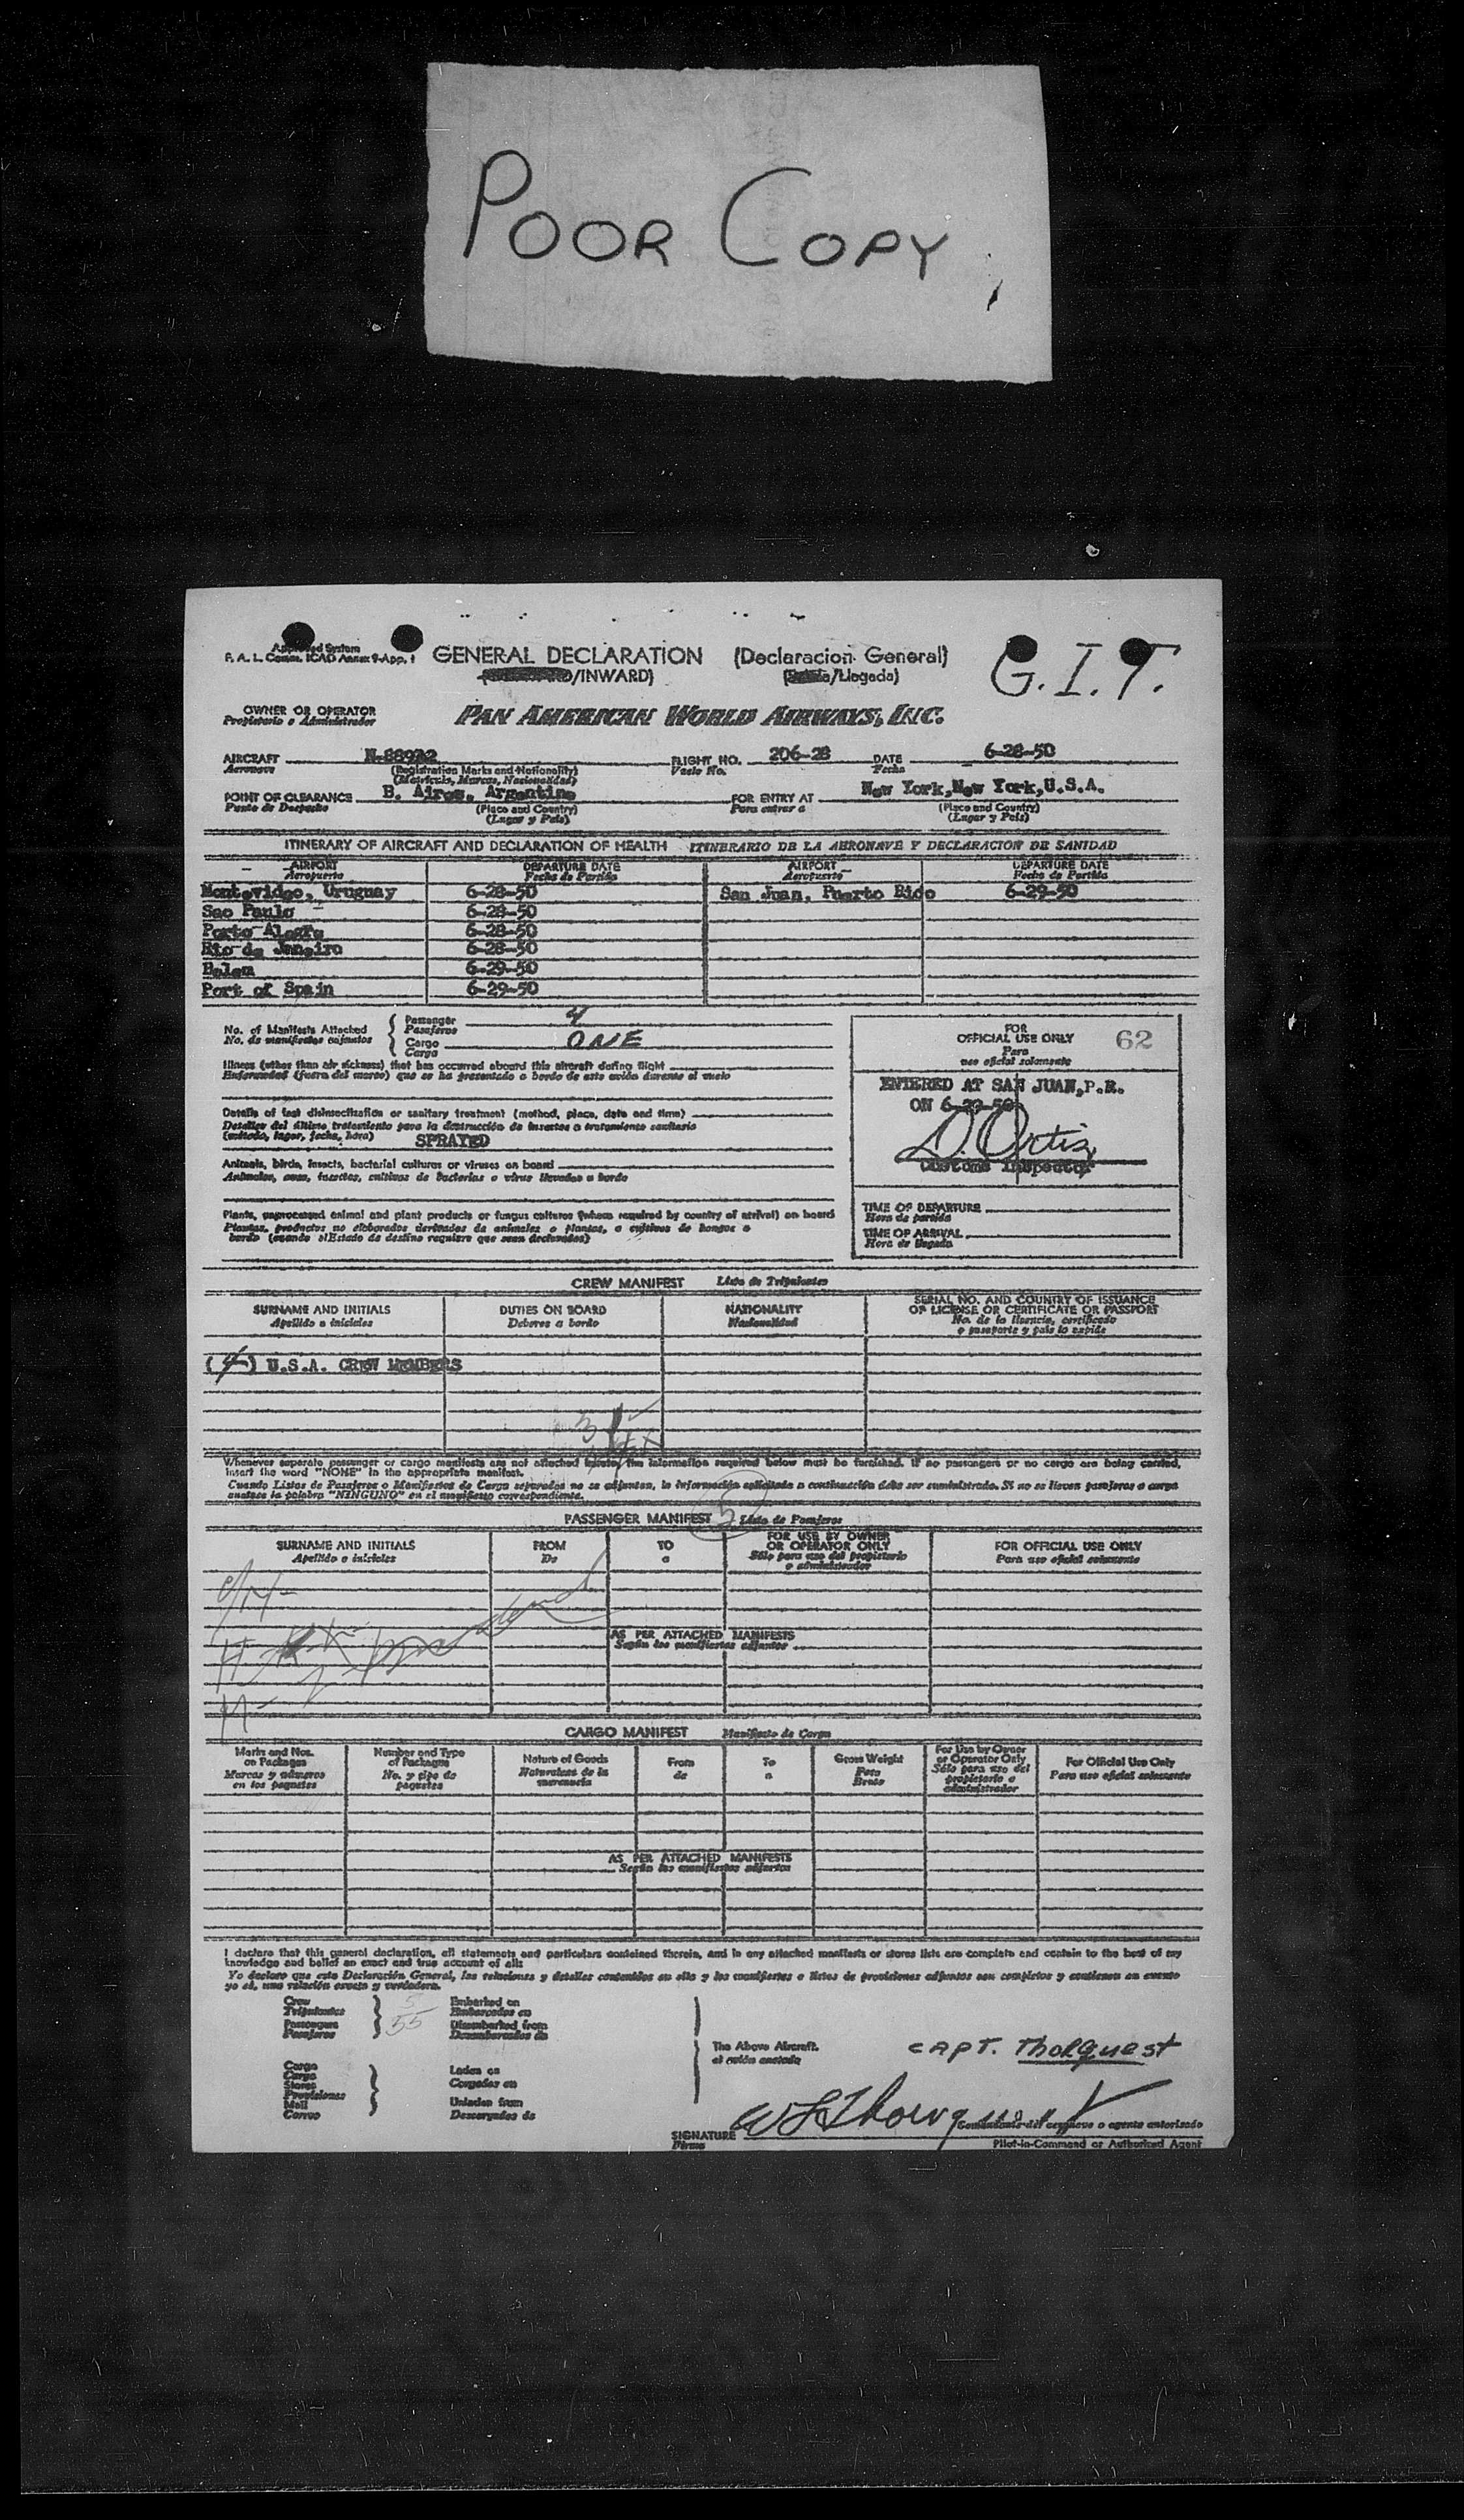 POOR COPY
Approved System
F. A. L. Comm. ICAO Annex 9-App. 1
GENERAL DECLARATION (Declaracion General)
/INWARD) /Llegada)
G.I.T.
OWNER OR OPERATOR
Propietario o Administrador
PAN AMERICAN WORLD AIRWAYS, INC.
AIRCRAFT FLIGHT NO. 206-28 DATE 6-28-50
Aeronave (Registration Marks and Nationality) Vuelo No. Fecha
(Matricula, Marcas, Nacionalidad)
POINT OF CLEARANCE B. Aires, Argentine FOR ENTRY AT New York, New York, U.S.A.
Punto de Despacho (Place and Country) Para entrar a (Place and Country)
(Lugar y Pais) (Lugar y Pais)
ITINERARY OF AIRCRAFT AND DECLARATION OF HEALTH ITINERARIO DE LA AERONAVE Y DECLARACION DE SANIDAD
AIRPORT DEPARTURE DATE AIRPORT DEPARTURE DATE
Aeropuerto Fecha de Partida Aeropuerto Fecha de Partida
Montevideo, Uruguay 6-28-50 San Juan, Puerto Rico 6-29-50
Sao Paulo 6-28-50
Porto Alegre 6-28-50
Rio de Janeiro 6-28-50
Belem 6-29-50
Port of Spain 6-29-50
No. of Manifests Attached Passenger 4
No. de manifiestos adjuntos Pasajeros
Cargo ONE
Cargo
FOR
OFFICIAL USE ONLY 62
Para
uso oficial solamente
Illness (other than air sickness) that has occurred aboard this aircraft during flight
Enfermedad (fuera del mareo) que se ha presentado a bordo de este avión durante el vuelo
ENTERED AT SAN JUAN, P.R.
ON 6-29-50
D. Ortiz
Customs Inspector
Details of last disinsectization or sanitary treatment (method, place, date and time)
Detalles del último tratamiento para la destrucción de insectos o tratamiento sanitario
(método, lugar, fecha, hora) SPRAYED
Animals, birds, insects, bacterial cultures or viruses on board
Animales, aves, insectos, cultivos de bacterias o virus llevados a bordo
Plants, unprocessed animal and plant products or fungus cultures (where required by country of arrival) on board
Plantas, productos no elaborados derivados de animales o plantas, o cultivos de hongos a
bordo (cuando el Estado de destino requiere que sean declarados)
TIME OF DEPARTURE
Hora de partida
TIME OF ARRIVAL
Hora de llegada
CREW MANIFEST Lista de Tripulantes
SURNAME AND INITIALS DUTIES ON BOARD NATIONALITY SERIAL NO. AND COUNTRY OF ISSUANCE
OF LICENSE OR CERTIFICATE OR PASSPORT
Apellido e iniciales Deberes a bordo Nacionalidad No. de la licencia, certificado
o pasaporte y país lo expide
U.S.A. CREW MEMBERS
Whenever separate passenger or cargo manifests are not attached hereto, the information required below must be furnished. If no passengers or no cargo are being carried,
insert the word "NONE" in the appropriate manifest.
Cuando Listas de Pasajeros o Manifiestos de Carga separados no se adjuntan, la información solicitada a continuación debe ser suministrada. Si no se llevan pasajeros o carga
anotese la palabra "NINGUNO" en el manifiesto correspondiente.
PASSENGER MANIFEST Lista de Pasajeros
SURNAME AND INITIALS FROM TO FOR USE BY OWNER
OR OPERATOR ONLY FOR OFFICIAL USE ONLY
Apellido e iniciales De a Sólo para uso del propietario
o administrador Para uso oficial solamente
AS PER ATTACHED MANIFESTS
Según los manifiestos adjuntos
CARGO MANIFEST Manifiesto de Carga
Marks and Nos.
on Packages
Marcas y números
en los paquetes
Number and Type
of Packages
No. y tipo de
paquetes
Nature of Goods
Naturaleza de la
mercancía
From
de
To
a
Gross Weight
Peso
Bruto
For Use by Owner
or Operator Only
Sólo para uso del
propietario o
administrador
For Official Use Only
Para uso oficial solamente
AS PER ATTACHED MANIFESTS
Según los manifiestos adjuntos
I declare that this general declaration, all statements and particulars contained therein, and in any attached manifests or stores lists are complete and contain to the best of my
knowledge and belief an exact and true account of all:
Yo declaro que esta Declaración General, las relaciones y detalles contenidos en ella y los manifiestos o listas de provisiones adjuntos son completos y contienen en cuanto
yo sé, una relación exacta y verdadera.
Crew 5 Embarked on
Tripulantes Embarcados en
Passengers 55 Disembarked from
Pasajeros Desembarcados de
The Above Aircraft.
el avión anotado
CAPT. Tholquest
Cargo Laden on
Carga
Stores Cargados en
Provisiones
Mail Unladen from
Correo Descargados de
SIGNATURE
Firma
Comandante del aeronave o agente autorizado
Pilot-in-Command or Authorized Agent